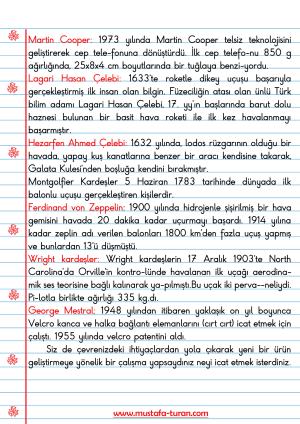 Martin Cooper: 1973 yılında Martin Cooper telsiz teknolojisini
geliştirerek cep tele-fonuna dönüştürdü. İlk cep telefo-nu 850 g
ağırlığında, 25x8x4 cm boyutlarında bir tuğlaya benzi-yordu.
Lagari Hasan Çelebi: 1633'te roketle dikey uçuşu başarıyla
gerçekleştirmiş ilk insan olan bilgin. Füzeciliğin atası olan ünlü Türk
bilim adamı Lagari Hasan Çelebi, 17. yy'ın başlarında barut dolu
haznesi bulunan bir basit hava roketi ile ilk kez havalanmayı
başarmıştır.
Hezarfen Ahmed Çelebi: 1632 yılında, lodos rüzgarının olduğu bir
havada, yapay kuş kanatlarına benzer bir aracı kendisine takarak,
Galata Kulesi'nden boşluğa kendini bırakmıştır.
Montgolfier Kardeşler 5 Haziran 1783 tarihinde dünyada ilk
balonlu uçuşu gerçekleştiren kişilerdir.
Ferdinand von Zeppelin: 1900 yılında hidrojenle şişirilmiş bir hava
gemisini havada 20 dakika kadar uçurmayı başardı. 1914 yılına
kadar zeplin adı verilen balonları 1800 km'den fazla uçuş yapmış
ve bunlardan 13'ü düşmüştü.
Wright kardeşler: Wright kardeşlerin 17 Aralık 1903'te North
Carolina'da Orville'in kontro-lünde havalanan ilk uçağı aerodina-
mik ses teorisine bağlı kalınarak ya-pılmıştı.Bu uçak iki perva--neliydi.
Pi-lotla birlikte ağırlığı 335 kg.dı.
George Mestral: 1948 yılından itibaren yaklaşık on yıl boyunca
Velcro kanca ve halka bağlantı elemanlarını (cırt cırt) icat etmek için
çalıştı. 1955 yılında velcro patentini aldı.
Siz de çevrenizdeki ihtiyaçlardan yola çıkarak yeni bir ürün
geliştirmeye yönelik bir çalışma yapsaydınız neyi icat etmek isterdiniz.
www.mustafa-turan.com